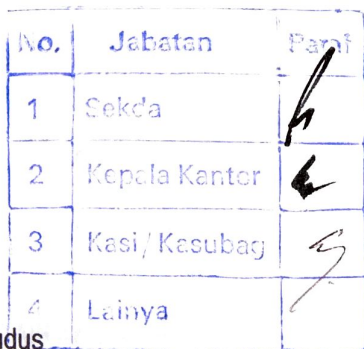 No. Jabatan Paraf
1 Sekda
2 Kepala Kantor
3 Kasi/Kasubag
4 Lainya